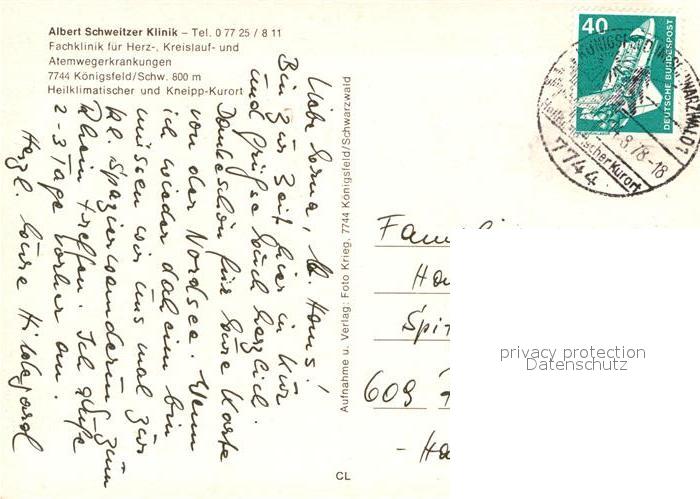 Albert Schweitzer Klinik – Tel. 0 77 25 / 8 11
Fachklinik für Herz-, Kreislauf- und
Atemwegerkrankungen
7744 Königsfeld/Schw. 800 m
Heilklimatischer und Kneipp-Kurort
Liebe Erna, lb. Hans!
Bin zur Zeit hier in Kur
und grüße Euch herzlich.
Dankeschön für Eure Karte
von der Nordsee. Wenn
ich wieder daheim bin
müssen wir uns mal zur
kl. Spazierwanderung zum
Rhein treffen. Ich rufe
2-3 Tage vorher an.
Herzl. Eure Hildegard
Aufnahme u. Verlag: Foto Krieg, 7744 Königsfeld/Schwarzwald
CL
40
DEUTSCHE BUNDESPOST
KÖNIGSFELD IM SCHWARZWALD 1
8.78-18
Heilklimatischer Kurort
7744
Fam
Ha
Spi
609
- Ha
privacy protection
Datenschutz